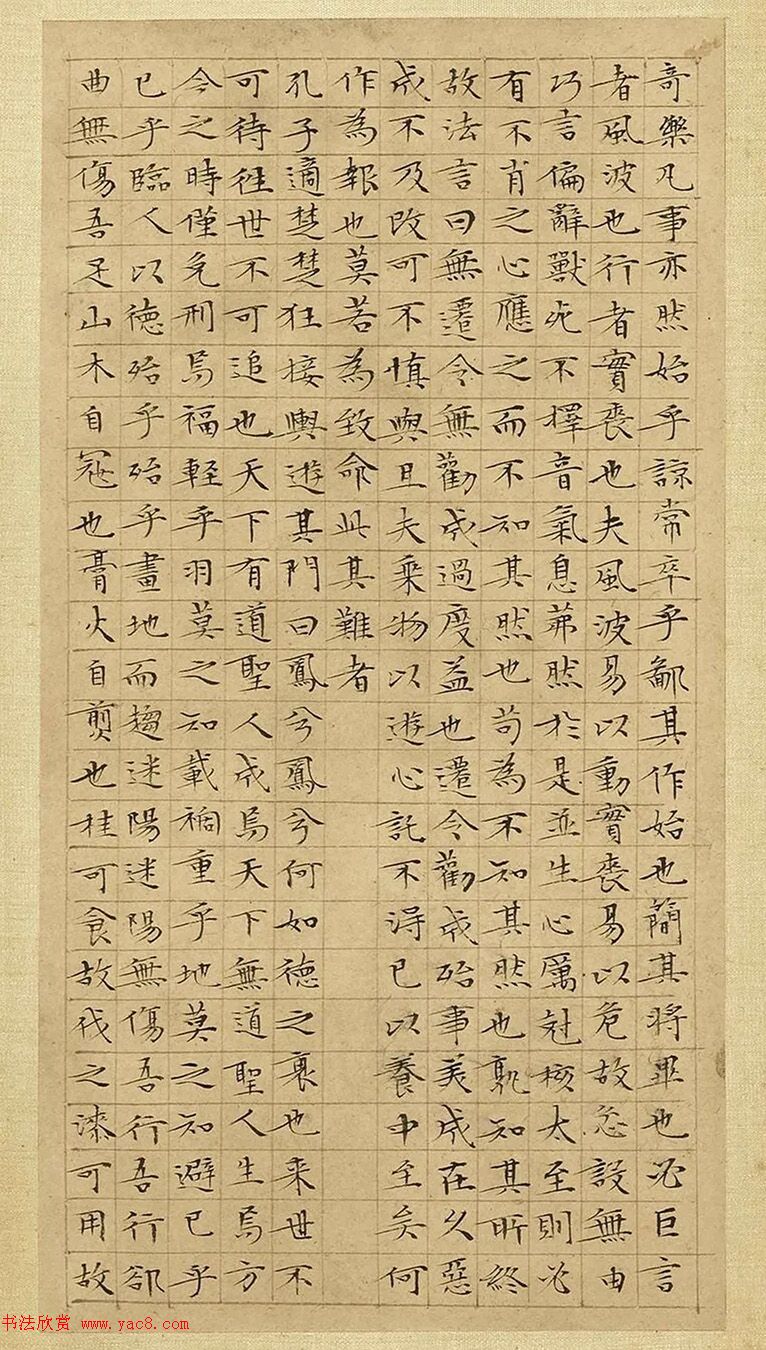 奇樂凡事亦然始乎諒常卒乎鄙其作始也簡其將畢也必巨言
者風波也行者實喪也夫風波易以動實喪易以危故忿設無由
巧言偏辭獸死不擇音氣息茀然於是並生心厲剋核太至則必
有不肖之心應之而不知其然也苟為不知其然也孰知其所終
故法言曰無遷令無勸成過度益也遷令勸成殆事美成在久惡
成不及改可不慎與且夫乘物以遊心託不得已以養中至矣何
作為報也莫若為致命此其難者
孔子適楚楚狂接輿遊其門曰鳳兮鳳兮何如德之衰也来世不
可待往世不可追也天下有道聖人成焉天下無道聖人生焉方
今之時僅免刑焉福輕乎羽莫之知載禍重乎地莫之知避已乎
已乎臨人以德殆乎殆乎畫地而趨迷陽迷陽無傷吾行吾行郤
曲無傷吾足山木自寇也膏火自煎也桂可食故伐之漆可用故
书法欣赏 www.yac8.com